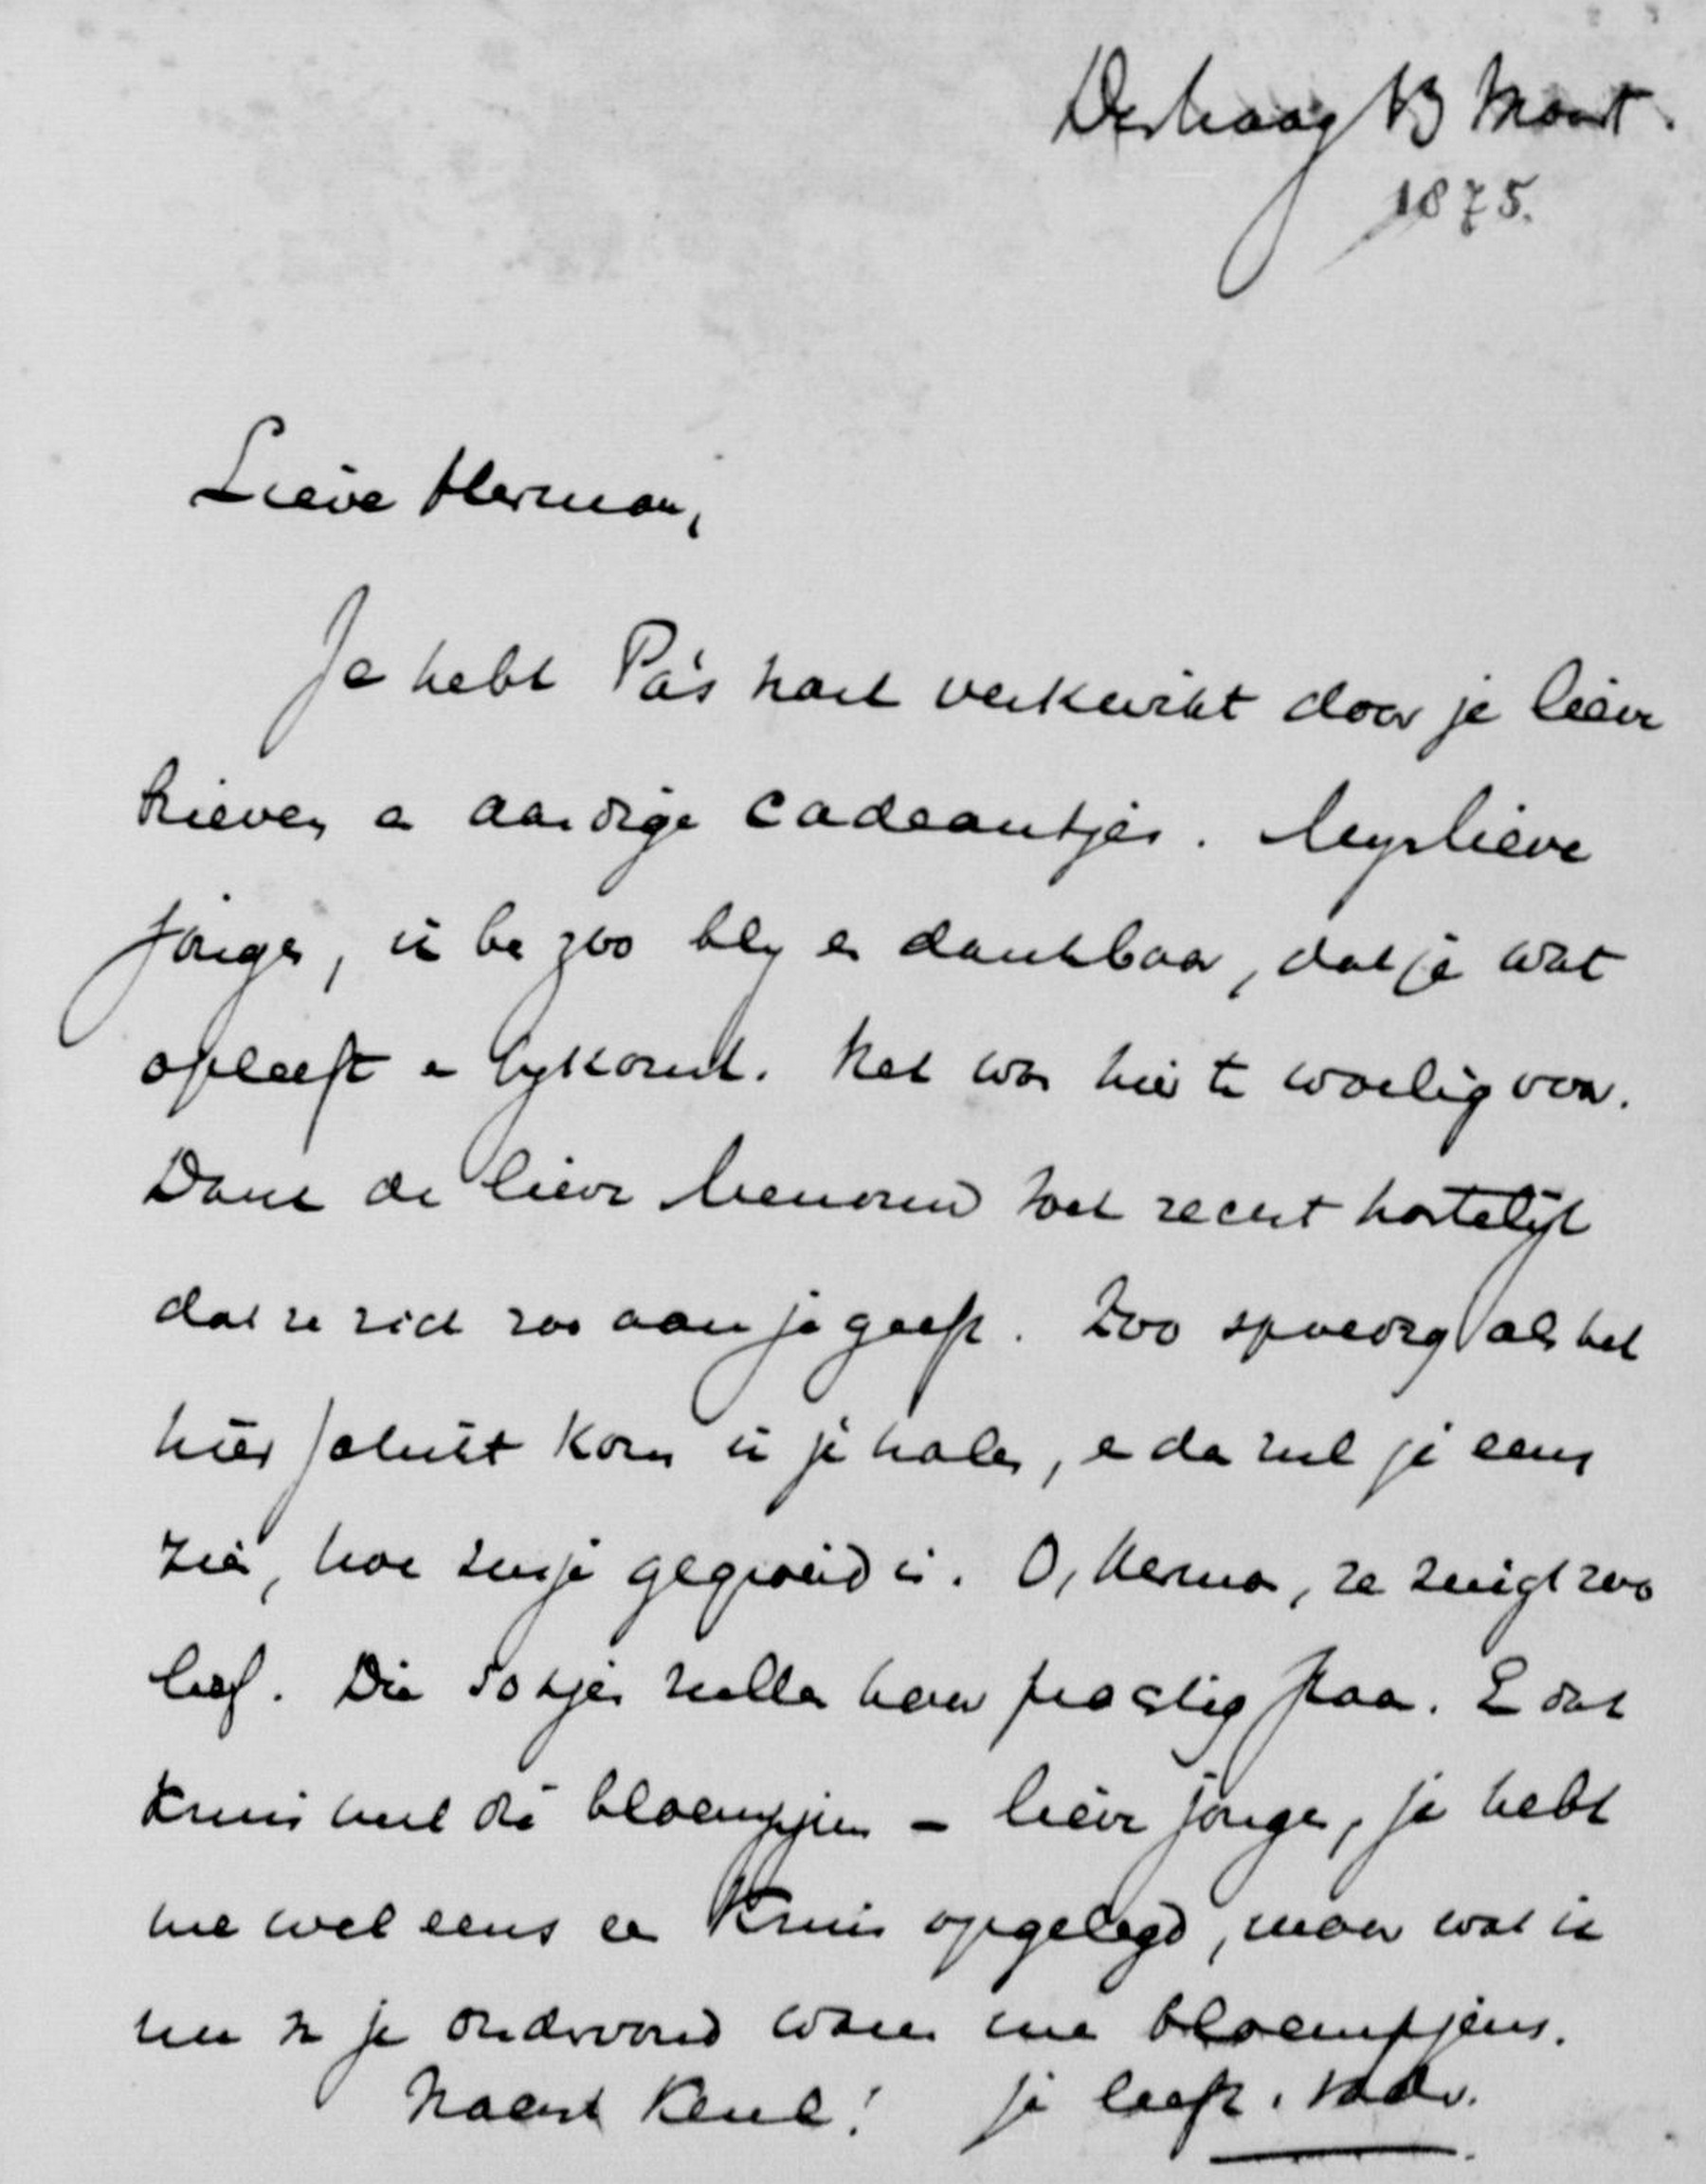 Den haag 13 Maart.
1875.
Lieve Herman,
Je hebt Pa's hart verkwikt door je lieve
brieven en aardige cadeautjes. Myn lieve
jongen, ik ben zoo bly en dankbaar, dat je wat
opleeft en bykomt. Het was hier te woelig voor.
Dank de lieve Mevrouw toch recht hartelijk
dat ze zich zoo aan je geeft. Zoo spoedig als het
hier schikt kom ik je halen, en dan zul je eens
zien, hoe zusje gegroeid is. O, Herman, ze zuigt zoo
lief. Die sokjes zullen haar prachtig staan. En dat
kruis met die bloempjen – lieve jongen, je hebt
me wel eens een kruis opgelegd, maar wat ik
nu van je ondervond waren me bloempjens.
Naent Kerel! je liefh. vader.